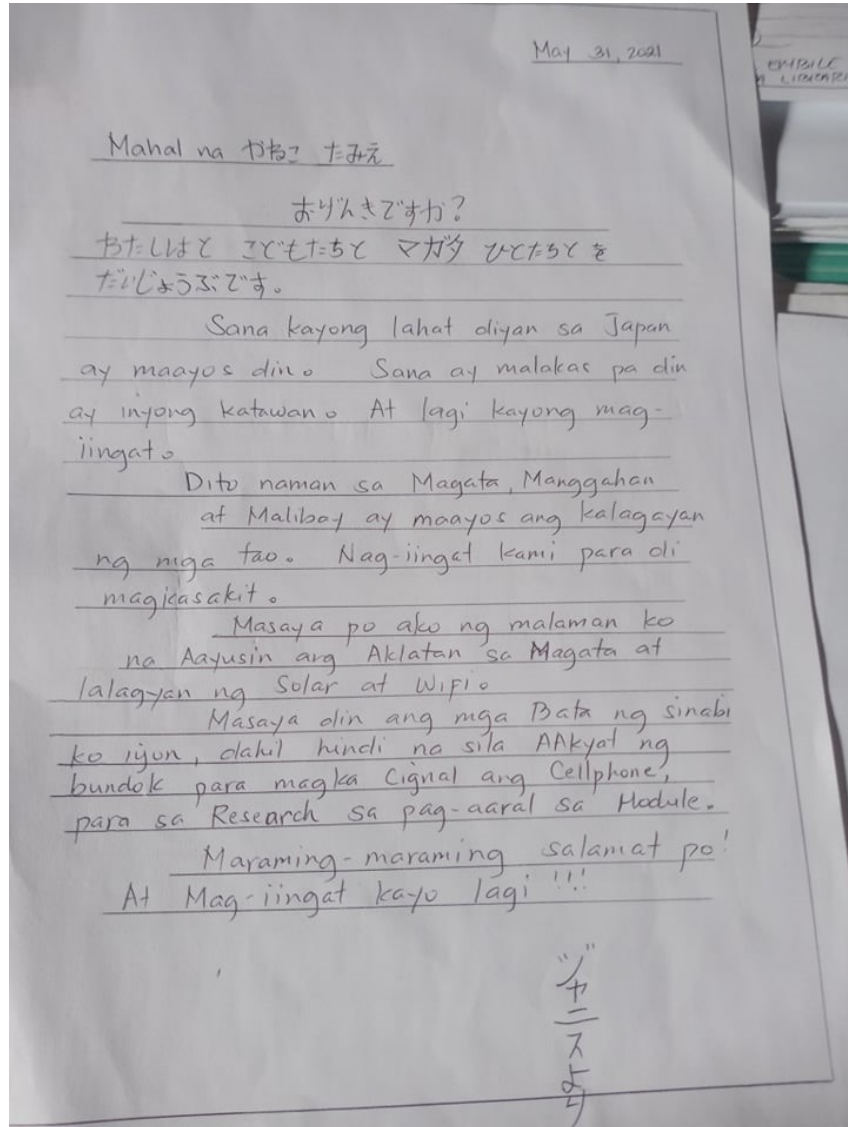 May 31, 2021
EMBILE
LIBRARE
Mahal na かねこ たみえ
おげんきですか?
わたしはと こどもたちと マガタ ひとたちと を
だいじょうぶです。
Sana kayong lahat diyan sa Japan
ay maayos din. Sana ay malakas pa din
ay inyong katawan. At lagi kayong mag-
iingat.
Dito naman sa Magata, Manggahan
at Malibay ay maayos ang kalagayan
ng mga tao. Nag-iingat kami para di
magkasakit.
Masaya po ako ng malaman ko
na Aayusin ang Aklatan sa Magata at
lalagyan ng Solar at WiFi.
Masaya din ang mga Bata ng sinabi
ko iyon, dahil hindi na sila AAkyat ng
bundok para magka Cignal ang Cellphone,
para sa Research sa pag-aaral sa Module.
Maraming-maraming salamat po!
At Mag-iingat kayo lagi !!!
ジャニスより